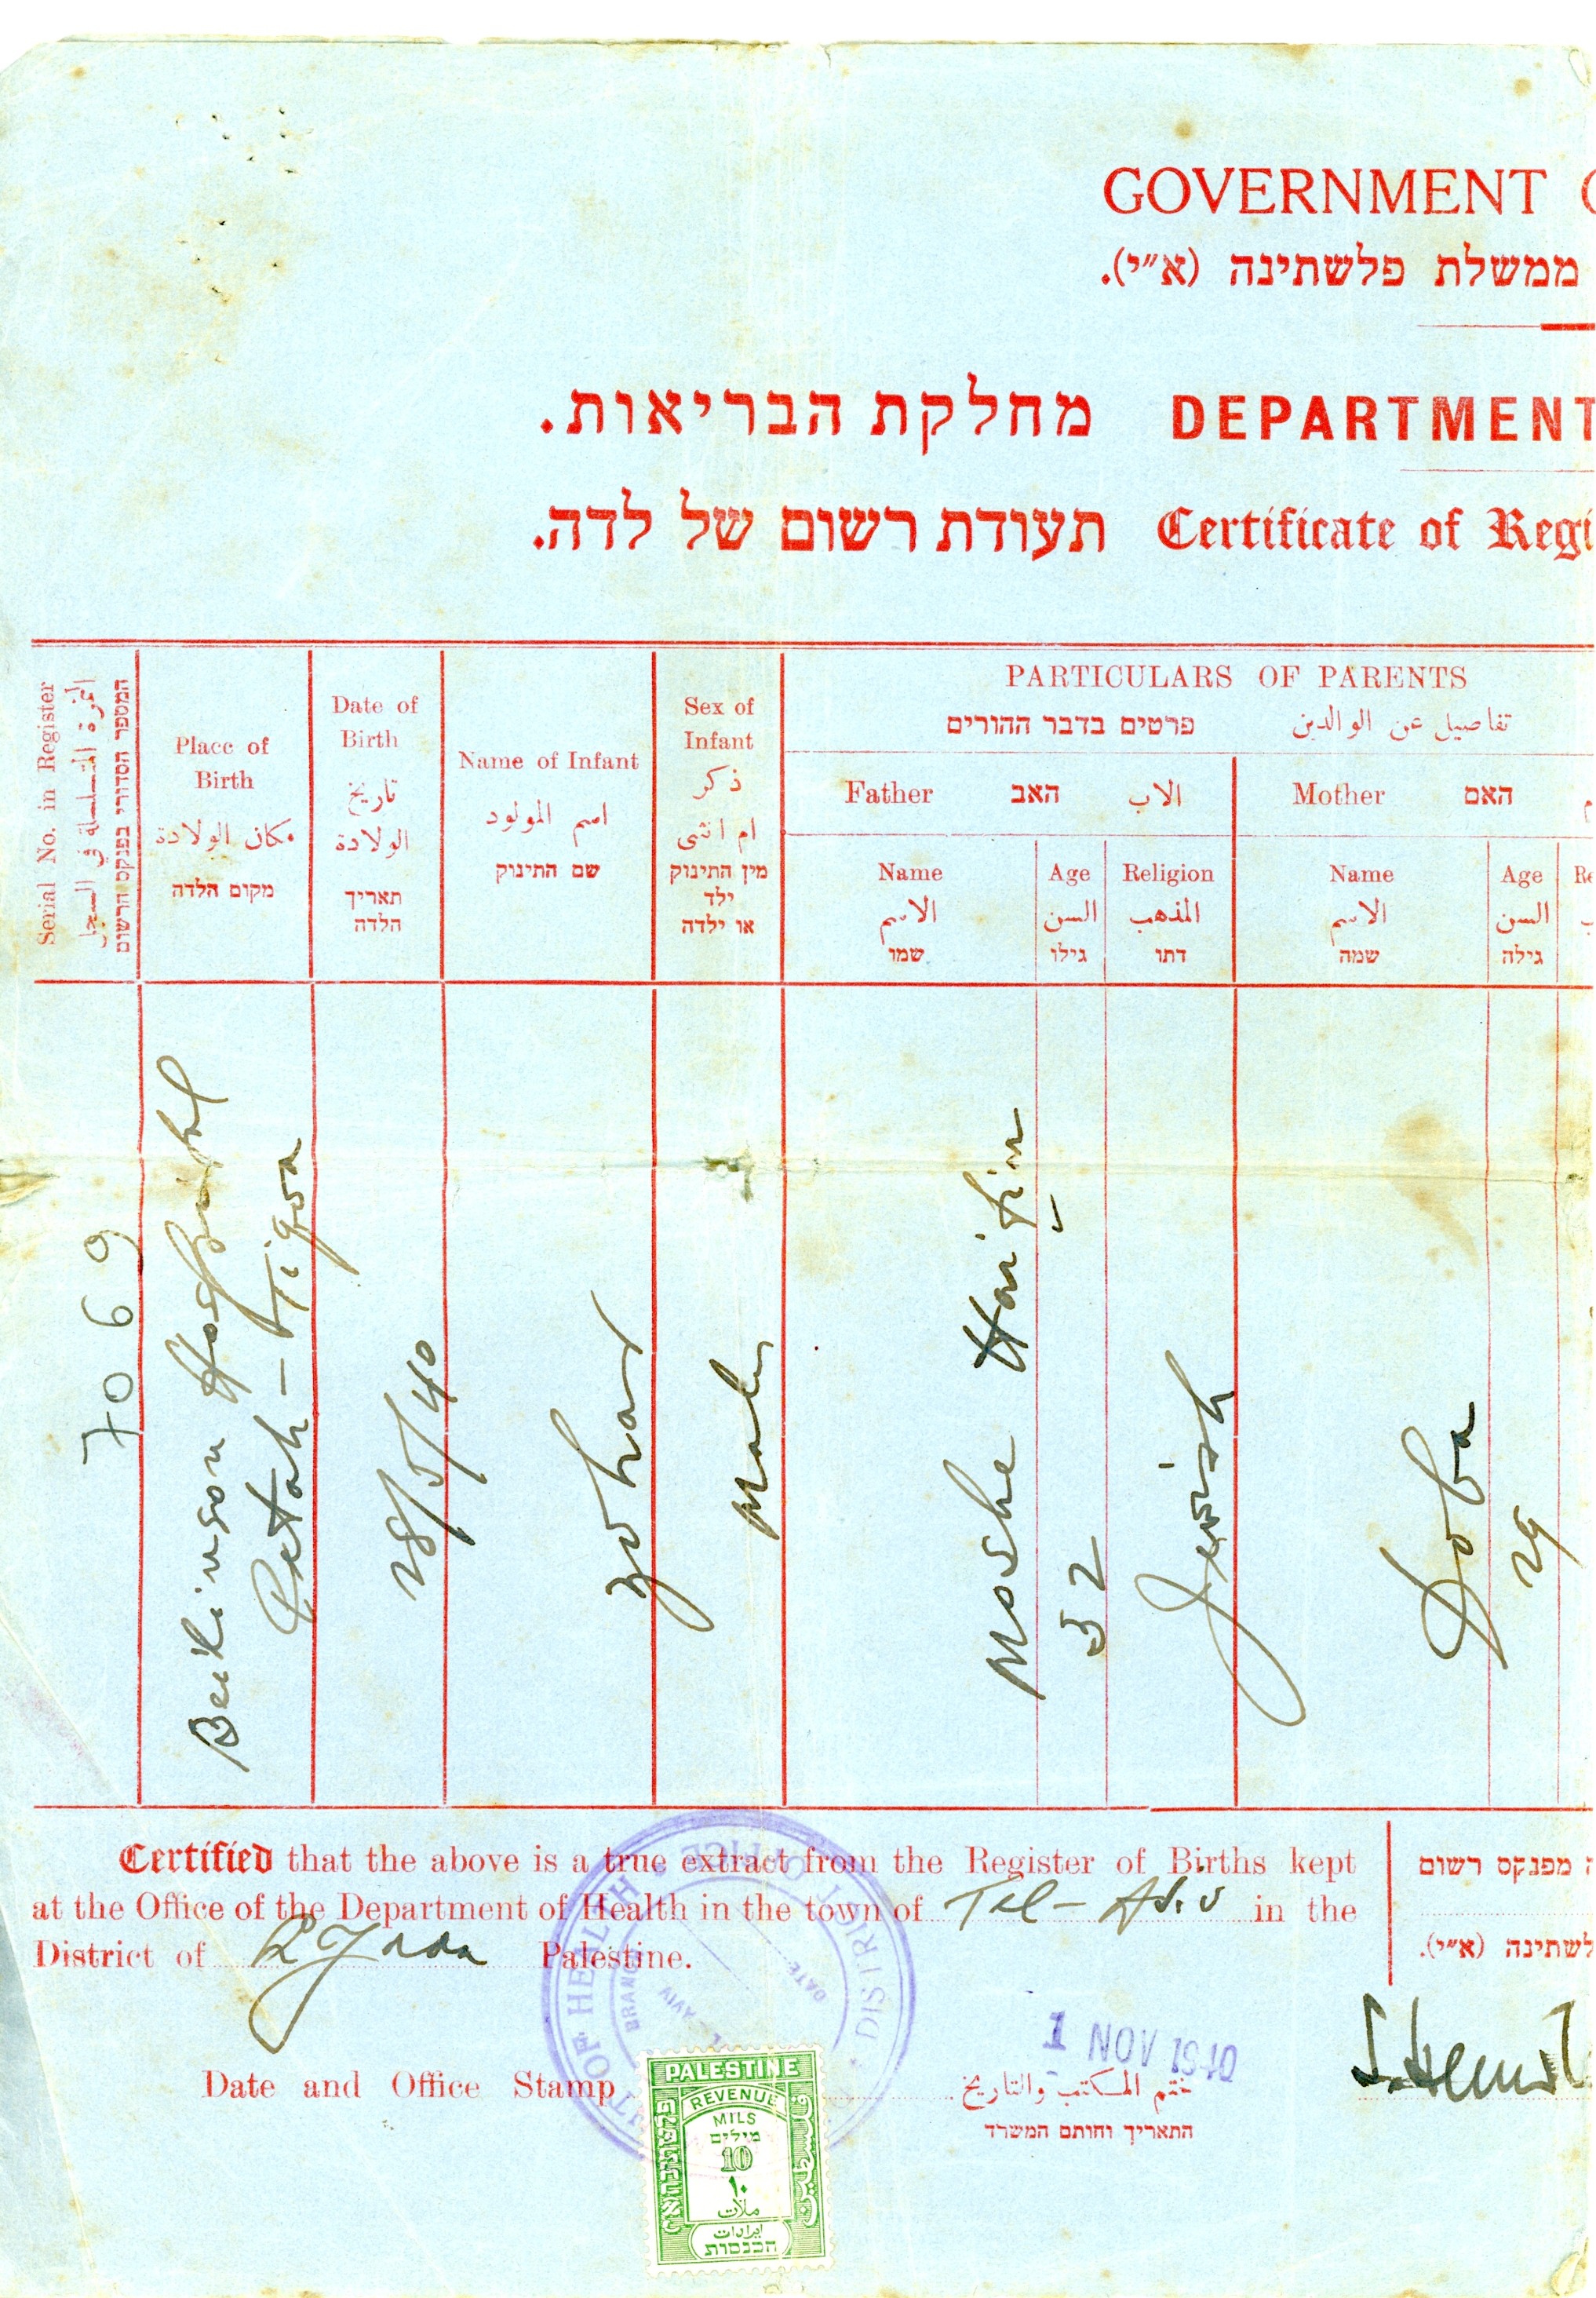 GOVERNMENT
ממשלת פלשתינה (א״י).
מחלקת הבריאות. DEPARTMENT
תעודת רשום של לדה. Certificate of Regi
Serial No. in Register
النمرة المتسلسلة في السجل
המספר הסדורי בפנקס הרשום
Place of
Birth
مكان الولادة
מקום הלדה
Date of
Birth
تاريخ
الولادة
תאריך
הלדה
Name of Infant
اسم المولود
שם התינוק
Sex of
Infant
ذكر
ام انثى
מין התינוק
ילד
או ילדה
PARTICULARS OF PARENTS
פרטים בדבר ההורים تفاصيل عن الوالدين
Father האב الاب
Mother האם
Name
الاسم
שמו
Age
السن
גילו
Religion
المذهب
דתו
Name
الاسم
שמה
Age
السن
גילה
7069
Beilinson Hospital
Petah-Tiqva
28/5/40
Zohar
Male
Moshe Haifin
32
Jewish
Doba
29
Certified that the above is a true extract from the Register of Births kept
at the Office of the Department of Health in the town of Tel-Aviv in the
District of Palestine.
מפנקס רשום
לשתינה (א״י).
OF HEALTH
DISTRICT OFFICE
BRANCH
AVIV
DATE
1 NOV 1940
Date and Office Stamp ختم المكتب والتاريخ
התאריך וחותם המשרד
PALESTINE
REVENUE
פלשתינה א״י
فلسطين
MILS
מילים
10
١٠
ملات
ايرادات
הכנסות